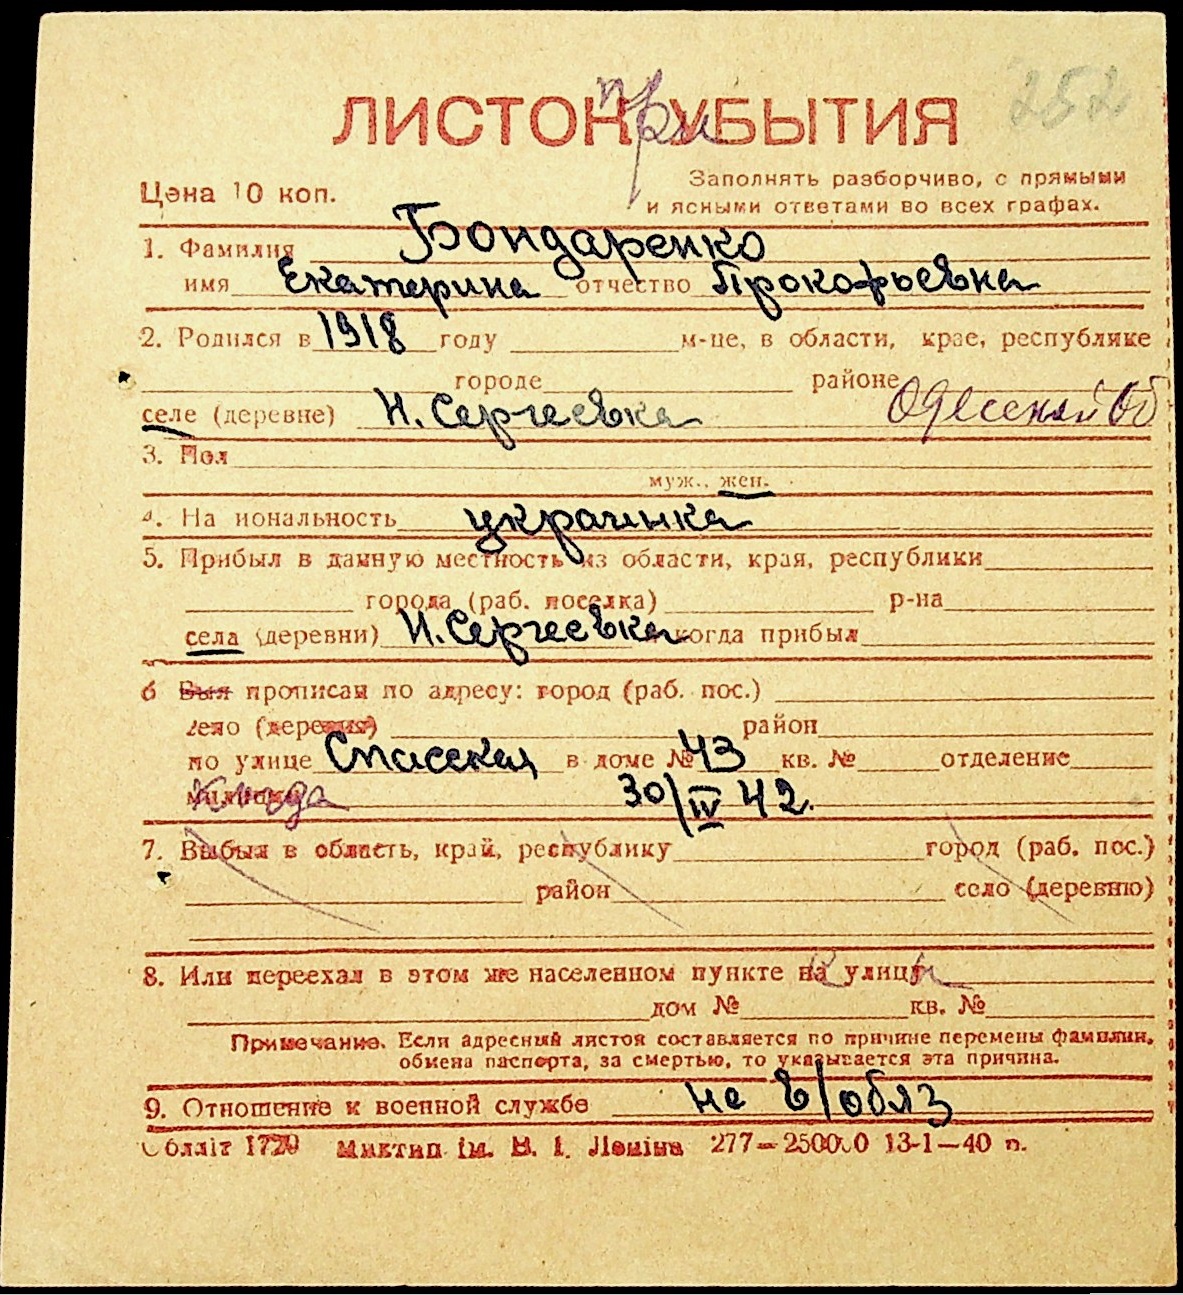 252
ЛИСТОК УБЫТИЯ
при
Цена 10 коп.
Заполнять разборчиво, с прямыми
и ясными ответами во всех графах.
1. Фамилия Бондаренко
имя Екатерина отчество Прокофьевна
2. Родился в 1918 году м-це, в области, крае, республике
городе районе
селе (деревне) Н. Сергеевка Одесской Об
3. Пол
муж., жен.
4. На иональность украинка
5. Прибыл в данную местность из области, края, республики
города (раб. поселка) р-на
села (деревни) Н. Сергеевка когда прибыл
6 Был прописан по адресу: город (раб. пос.)
село (деревня) район
по улице Спасская в доме № 43 кв. № отделение
когда 30/IV 42.
7. Выбыл в область, край, республику город (раб. пос.)
район село (деревню)
8. Или переехал в этом же населенном пункте на улицу
дом № кв. №
Примечание. Если адресный листок составляется по причине перемены фамилии,
обмена паспорта, за смертью, то указывается эта причина.
9. Отношение к военной службе не в/обяз
Обллiт 1729 Миктип iм. В. I. Ленiна 277—250000 13-1—40 п.